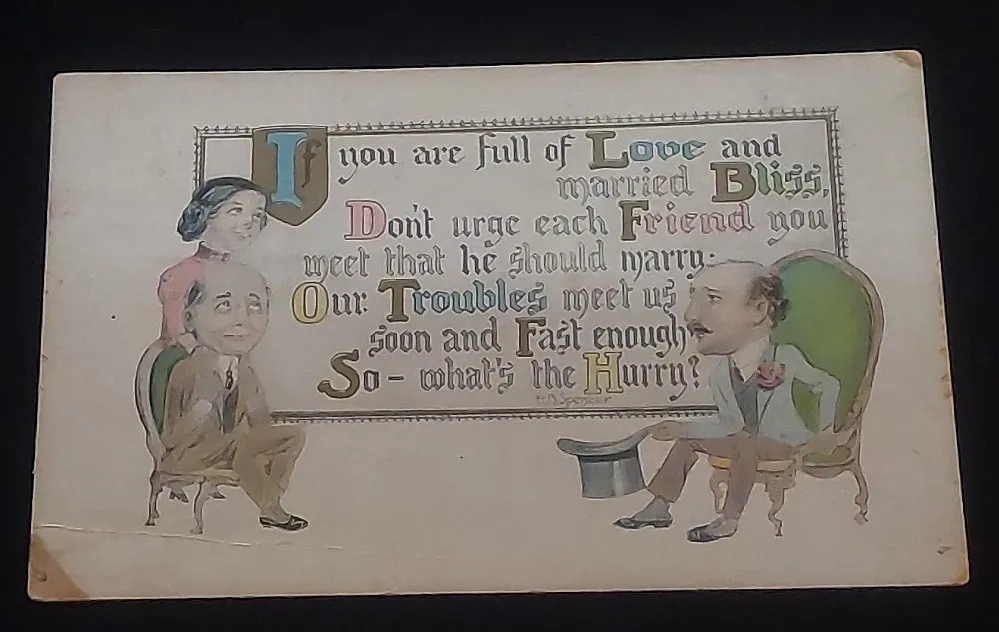 If you are full of Love and
married Bliss,
Don't urge each Friend you
meet that he should marry:
Our Troubles meet us
soon and Fast enough
So – what's the Hurry?
H.B. Spencer